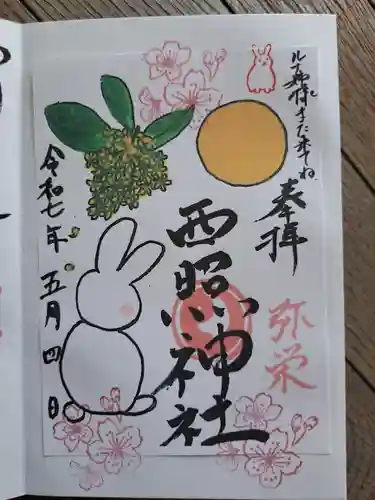 ルイ姉様また来てね
奉拝
弥栄
西照神社
令和七年五月四日